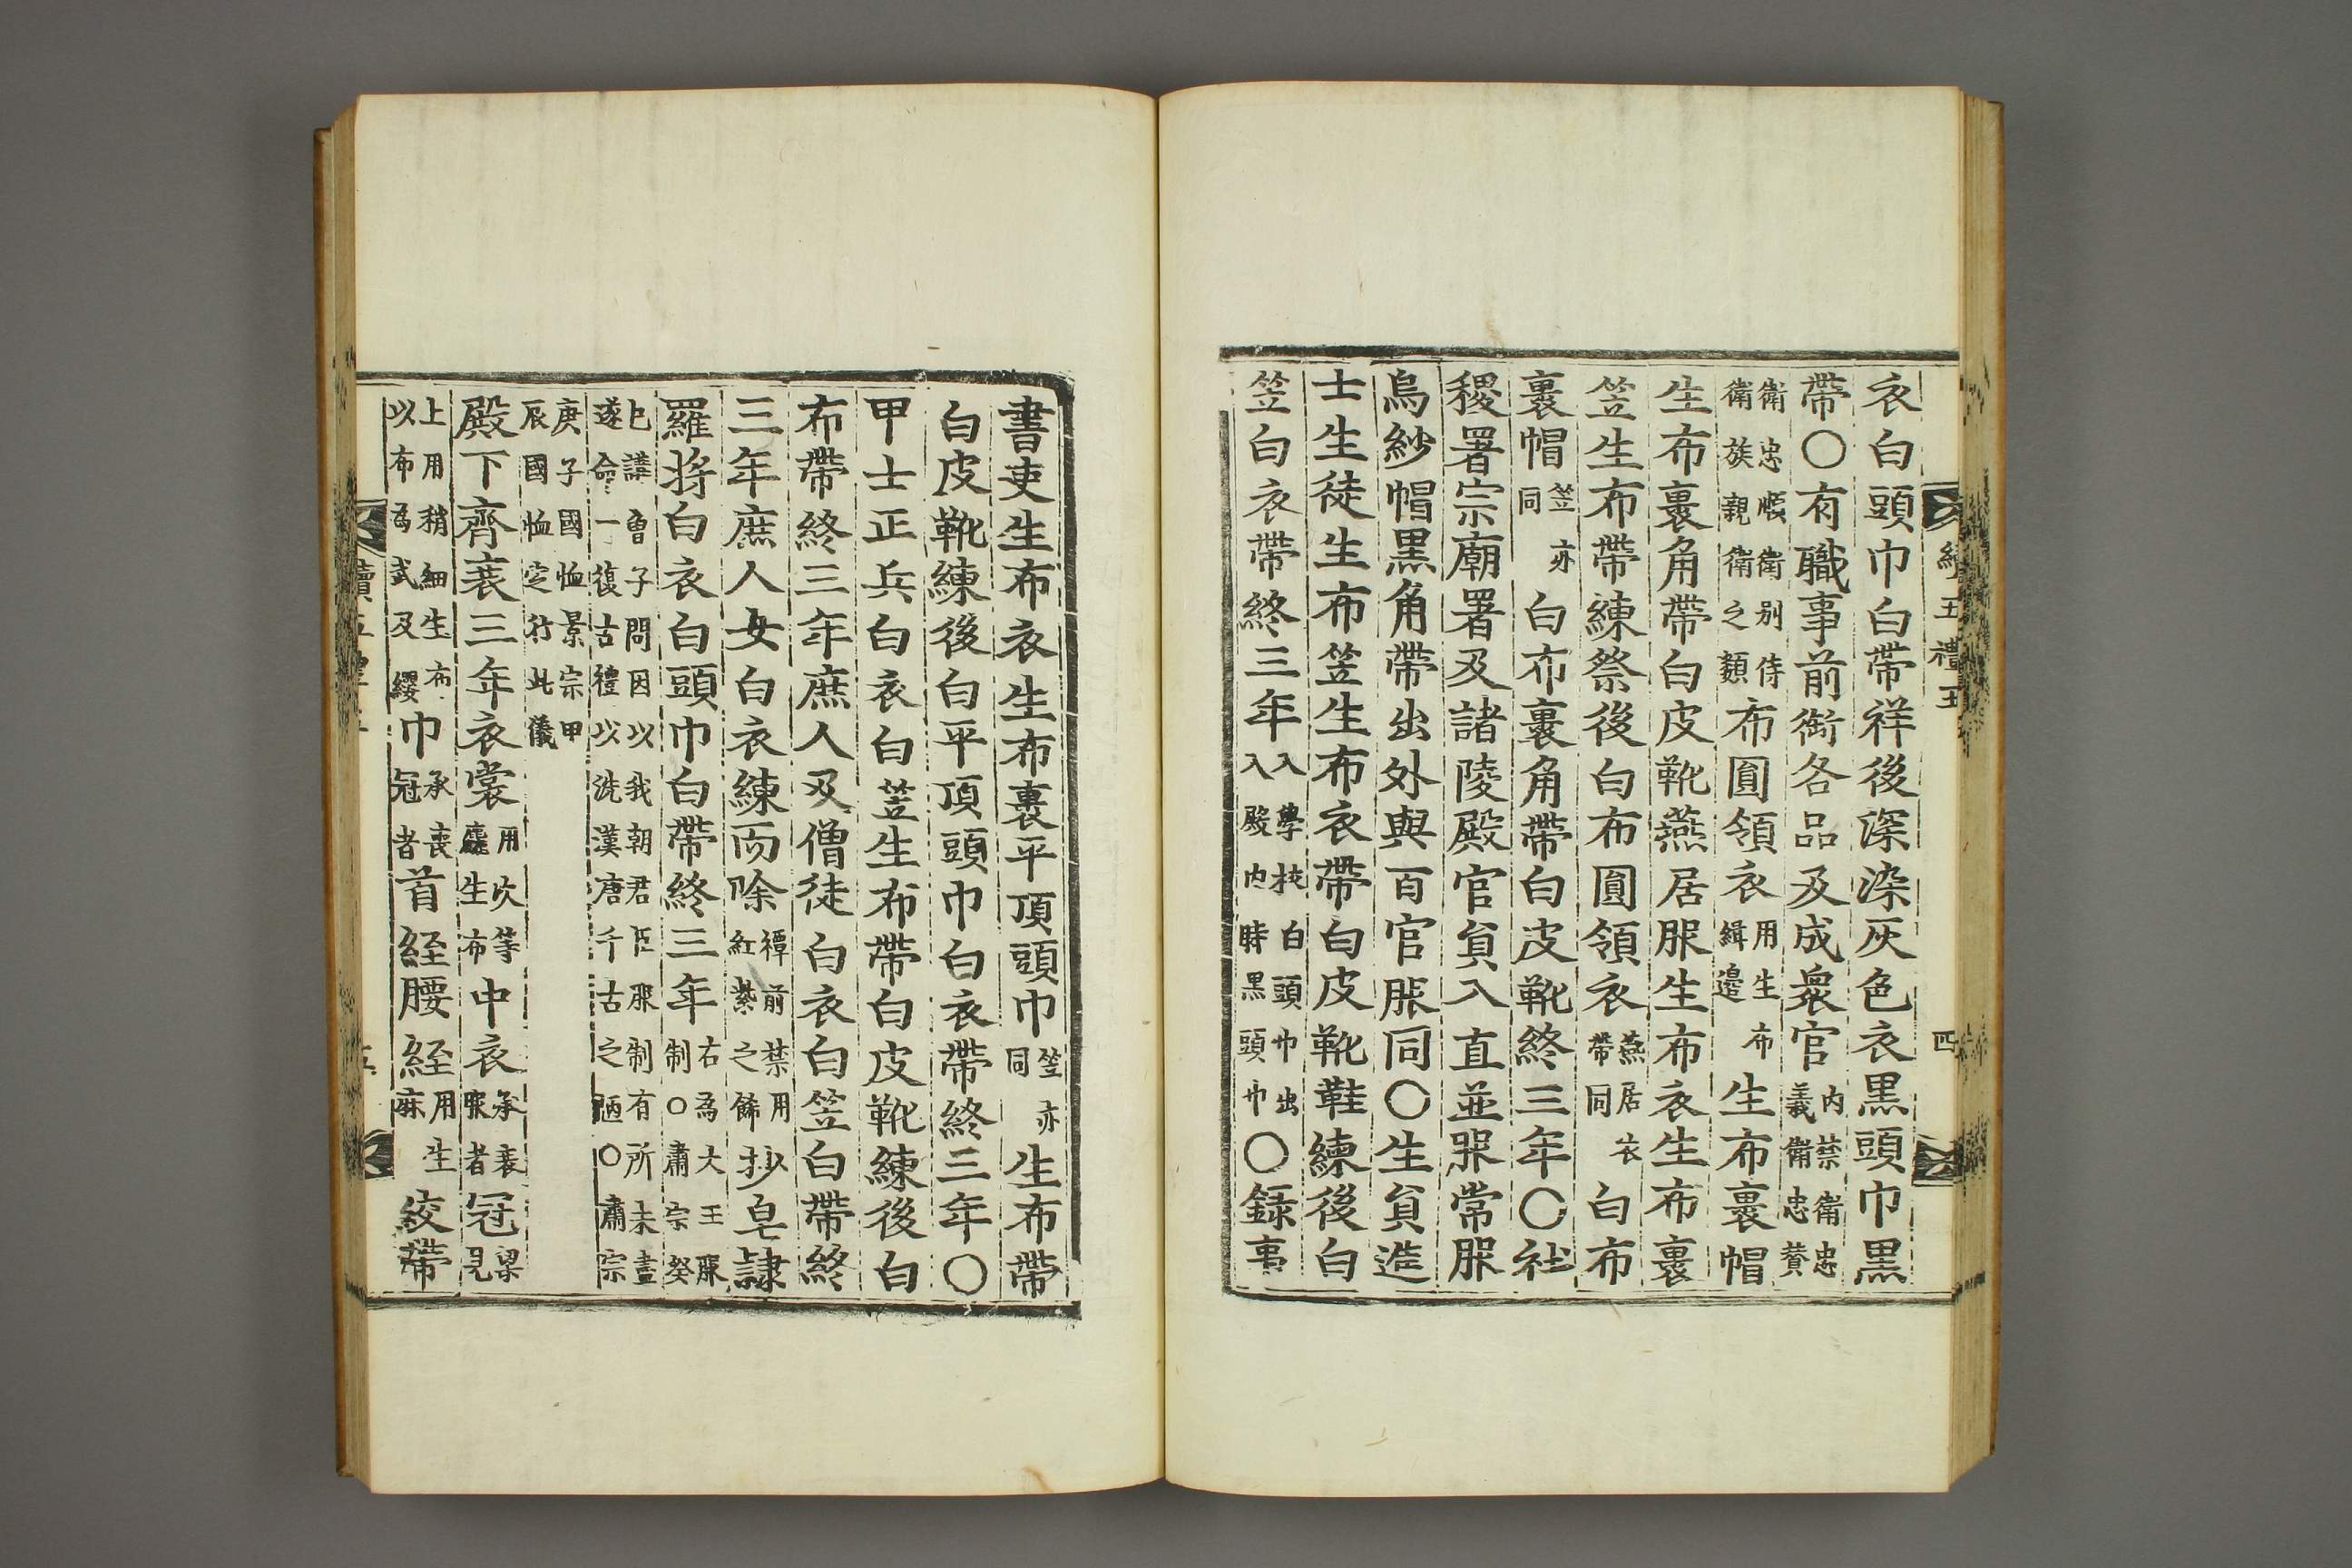 衣白頭巾白帶祥後深染灰色衣黒頭巾黒
帶○有職事前銜各品及成衆官内禁衛忠義衛忠贊
衛忠順衛别侍衛族親衛之類布圓領衣用生布緝邉生布裹帽
生布裹角帶白皮靴燕居服生布衣生布裹
笠生布帶練祭後白布圓領衣燕居衣帶同白布
裹帽笠亦同白布裹角帶白皮靴終三年○社
稷署宗廟署及諸陵殿官負入直並服常服
烏紗帽黒角帶出外與百官服同○生負進
士生徒生布笠生布衣帶白皮靴鞋練後白
笠白衣帶終三年入學校白頭巾出入殿内時黒頭巾○録事
書吏生布衣生布裹平頂頭巾笠亦同生布帶
白皮靴練後白平頂頭巾白衣帶終三年○
甲士正兵白衣白笠生布帶白皮靴練後白
布帶終三年庶人及僧徒白衣白笠白帶終
三年庶人女白衣練而除禫前禁用紅紫之飾抄皂隷
羅將白衣白頭巾白帶終三年右爲大王服制○肅宗癸
巳講曾子問因以我朝君臣服制有所未盡遂命一復古禮以洗漢唐千古之陋○肅宗
庚子國恤景宗甲辰國恤定行此儀
殿下齊衰三年衣裳用次等麤生布中衣承衰服者冠梁見
上用稍細生布以布爲武及纓巾承喪冠者首絰腰絰用生麻絞帶
續五禮五
四